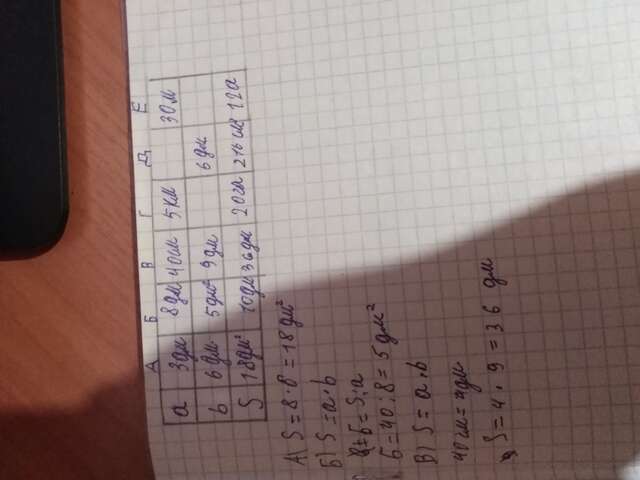 А Б В Г Д Е
a 3дм 8дм 40см 5км 30м
b 6дм 5дм² 9дм 6дм
S 18дм² 36дм 20га 12а
А) S=
=18дм²
Б) S=a·b
Б=S:a
Б=40:8=5дм²
В) S=a·b
40см=4дм
S=4·9=36 дм